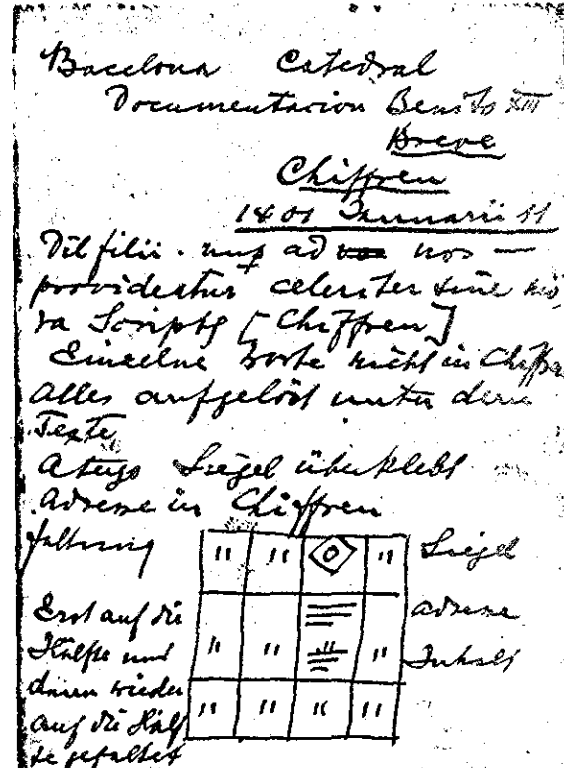 Barcelona Catedral
Documentacion Benito XIII
Breve
Chiffren
1401 Januarii 11
Dil filii . nup ad nos —
provideatur celeriter sine mo
ra Scripta [Chiffren]
Einzelne Worte nicht in Chiffren
Alles aufgelöst unter dem
Texte
Siegel überklebt
Adresse in Chiffren
Faltung
Siegel
Erst auf die
Adresse
Hälfte und
Inhalt
dann wieder
auf die Hälf
te gefaltet